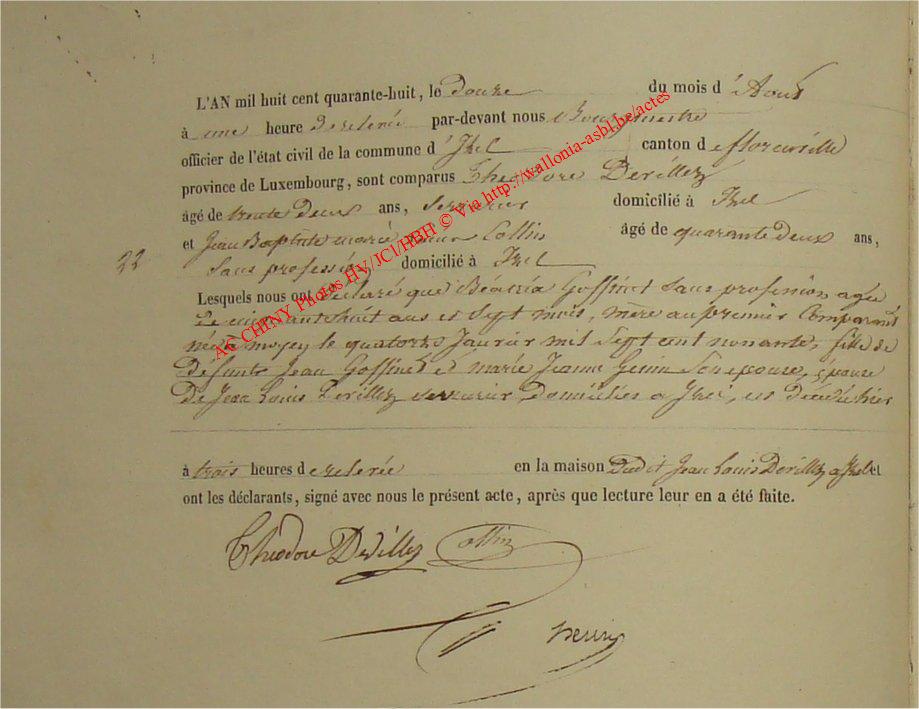 L'AN mil huit cent quarante-huit, le douze du mois d'Aout
à une heure de relevée par-devant nous Bourgmestre
officier de l'état civil de la commune d'Izel canton de florenville
province de Luxembourg, sont comparus Théodore Devillez
âgé de trente deux ans, serrurier domicilié à Izel
et Jean Baptiste marie Collin âgé de quarante deux ans,
22 sans profession domicilié à Izel
Lesquels nous ont déclaré que Béatrix Goffinet sans profession agée
de cinquante huit ans et sept mois, mère au premier Comparant
née à moyen le quatorze Janvier mil sept cent nonante, fille de
défunts Jean Goffinet et marie Jeanne son epouse, épouse
de Jean Louis Devillez serrurier domiciliés a Izel, est décédé hier
à trois heures de relevée en la maison dud it Jean Louis Devillez a Izel et
ont les déclarants, signé avec nous le présent acte, après que lecture leur en a été faite.
Théodore Devillez Collin
AC CHINY Photos HV/JCI/HBH © Via http://wallonia-asbl.be/actes